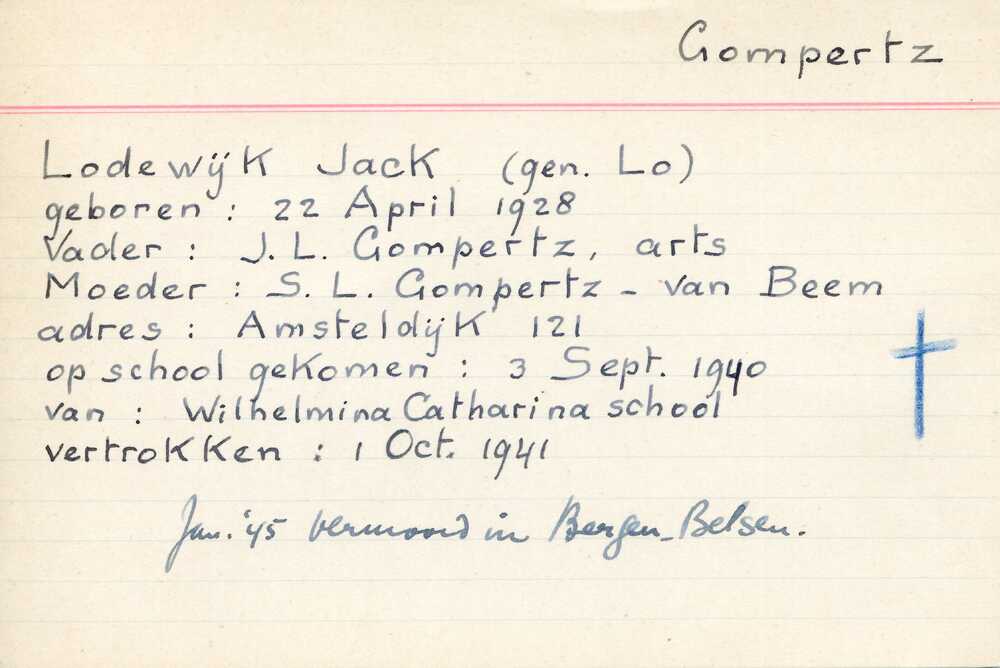 Gompertz
Lodewijk Jack (gen. Lo)
geboren : 22 April 1928
Vader : J. L. Gompertz, arts
Moeder : S. L. Gompertz - van Beem
adres : Amsteldijk 121
op school gekomen : 3 Sept. 1940
van : Wilhelmina Catharina school
vertrokken : 1 Oct. 1941
Jan. '45 vermoord in Bergen-Belsen.